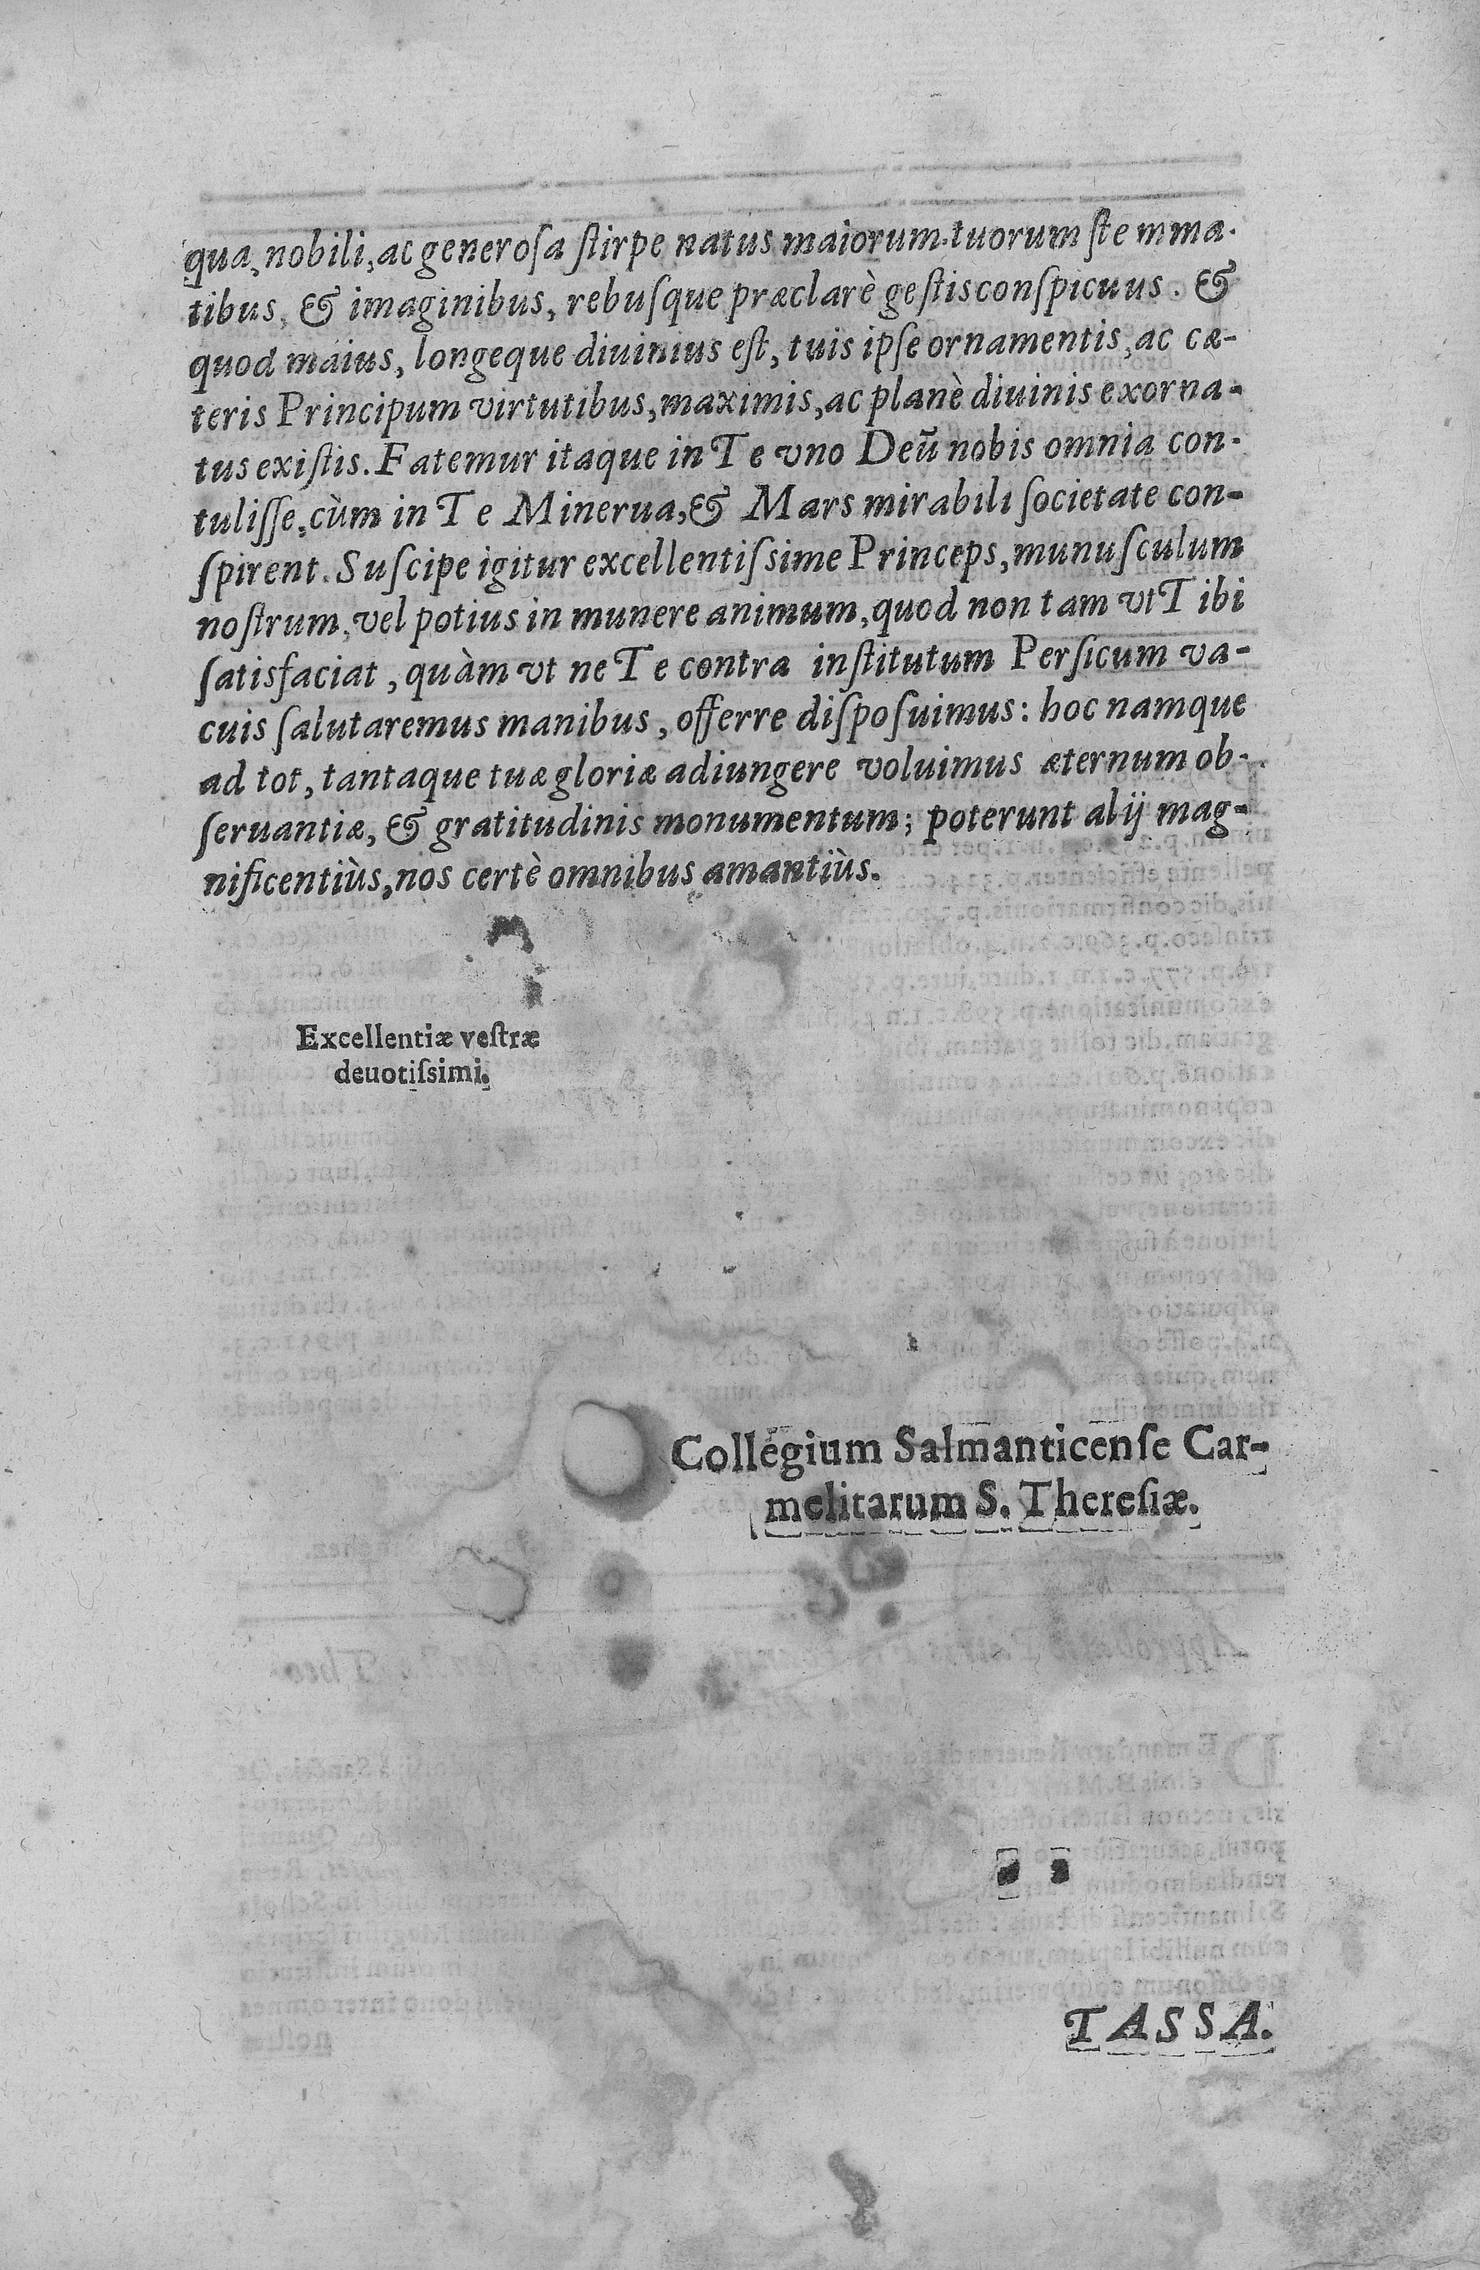 qua, nobili, ac generosa stirpe natus maiorum tuorum stemma-
tibus, & imaginibus, rebusque præclarè gestis conspicuus. &
quod maius, longeque diuinius est, tuis ipse ornamentis, ac cæ-
teris Principum virtutibus, maximis, ac planè diuinis exorna-
tus existis. Fatemur itaque in Te vno Deũ nobis omnia con-
tulisse, cùm in Te Minerua, & Mars mirabili societate con-
spirent. Suscipe igitur excellentissime Princeps, munusculum
nostrum, vel potius in munere animum, quod non tam vt Tibi
satisfaciat, quàm vt ne Te contra institutum Persicum va-
cuis salutaremus manibus, offerre disposuimus: hoc namque
ad tot, tantaque tuæ gloriæ adiungere voluimus æternum ob-
seruantiæ, & gratitudinis monumentum; poterunt alij mag-
nificentiùs, nos certè omnibus amantiùs.
Excellentiæ vestræ
deuotissimi.
Collegium Salmanticense Car-
melitarum S. Theresiæ.
TASSA.